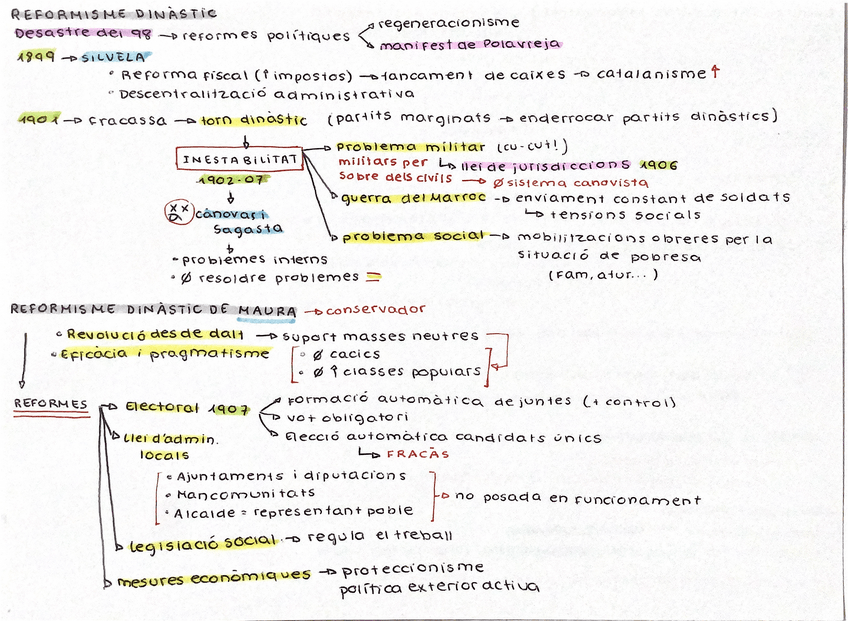 REFORMISME DINÀSTIC
Desastre del 98 → reformes polítiques
regeneracionisme
manifest de Polavieja
1899 → SILVELA
• Reforma fiscal (↑ impostos) → tancament de caixes → catalanisme ↑
• Descentralització administrativa
1901 → fracassa → torn dinàstic (partits marginats → enderrocar partits dinàstics)
INESTABILITAT
1902-07
cánovas i
Sagasta
• problemes interns
• Ø resoldre problemes =
problema militar (cu-cut!)
militars per sobre dels civils
↳ llei de jurisdiccions 1906
→ Ø sistema canovista
guerra del Marroc → enviament constant de soldats
↳ tensions socials
problema social → mobilitzacions obreres per la
situació de pobresa
(fam, atur...)
REFORMISME DINÀSTIC DE MAURA → conservador
• Revolució des de dalt → suport masses neutres
• Eficàcia i pragmatisme
• Ø cacics
• Ø ↑ classes populars
REFORMES
Electoral 1907
Formació automàtica de juntes (+ control)
vot obligatori
Elecció automàtica candidats únics
↳ FRACÀS
Llei d'admin.
locals
• Ajuntaments i diputacions
• Mancomunitats
• Alcalde = representant poble
→ no posada en funcionament
legislació social → regula el treball
mesures econòmiques → proteccionisme
política exterior activa